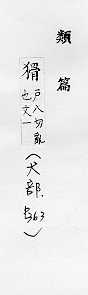 類篇
猾戶八切亂也文一(犬部.P363)